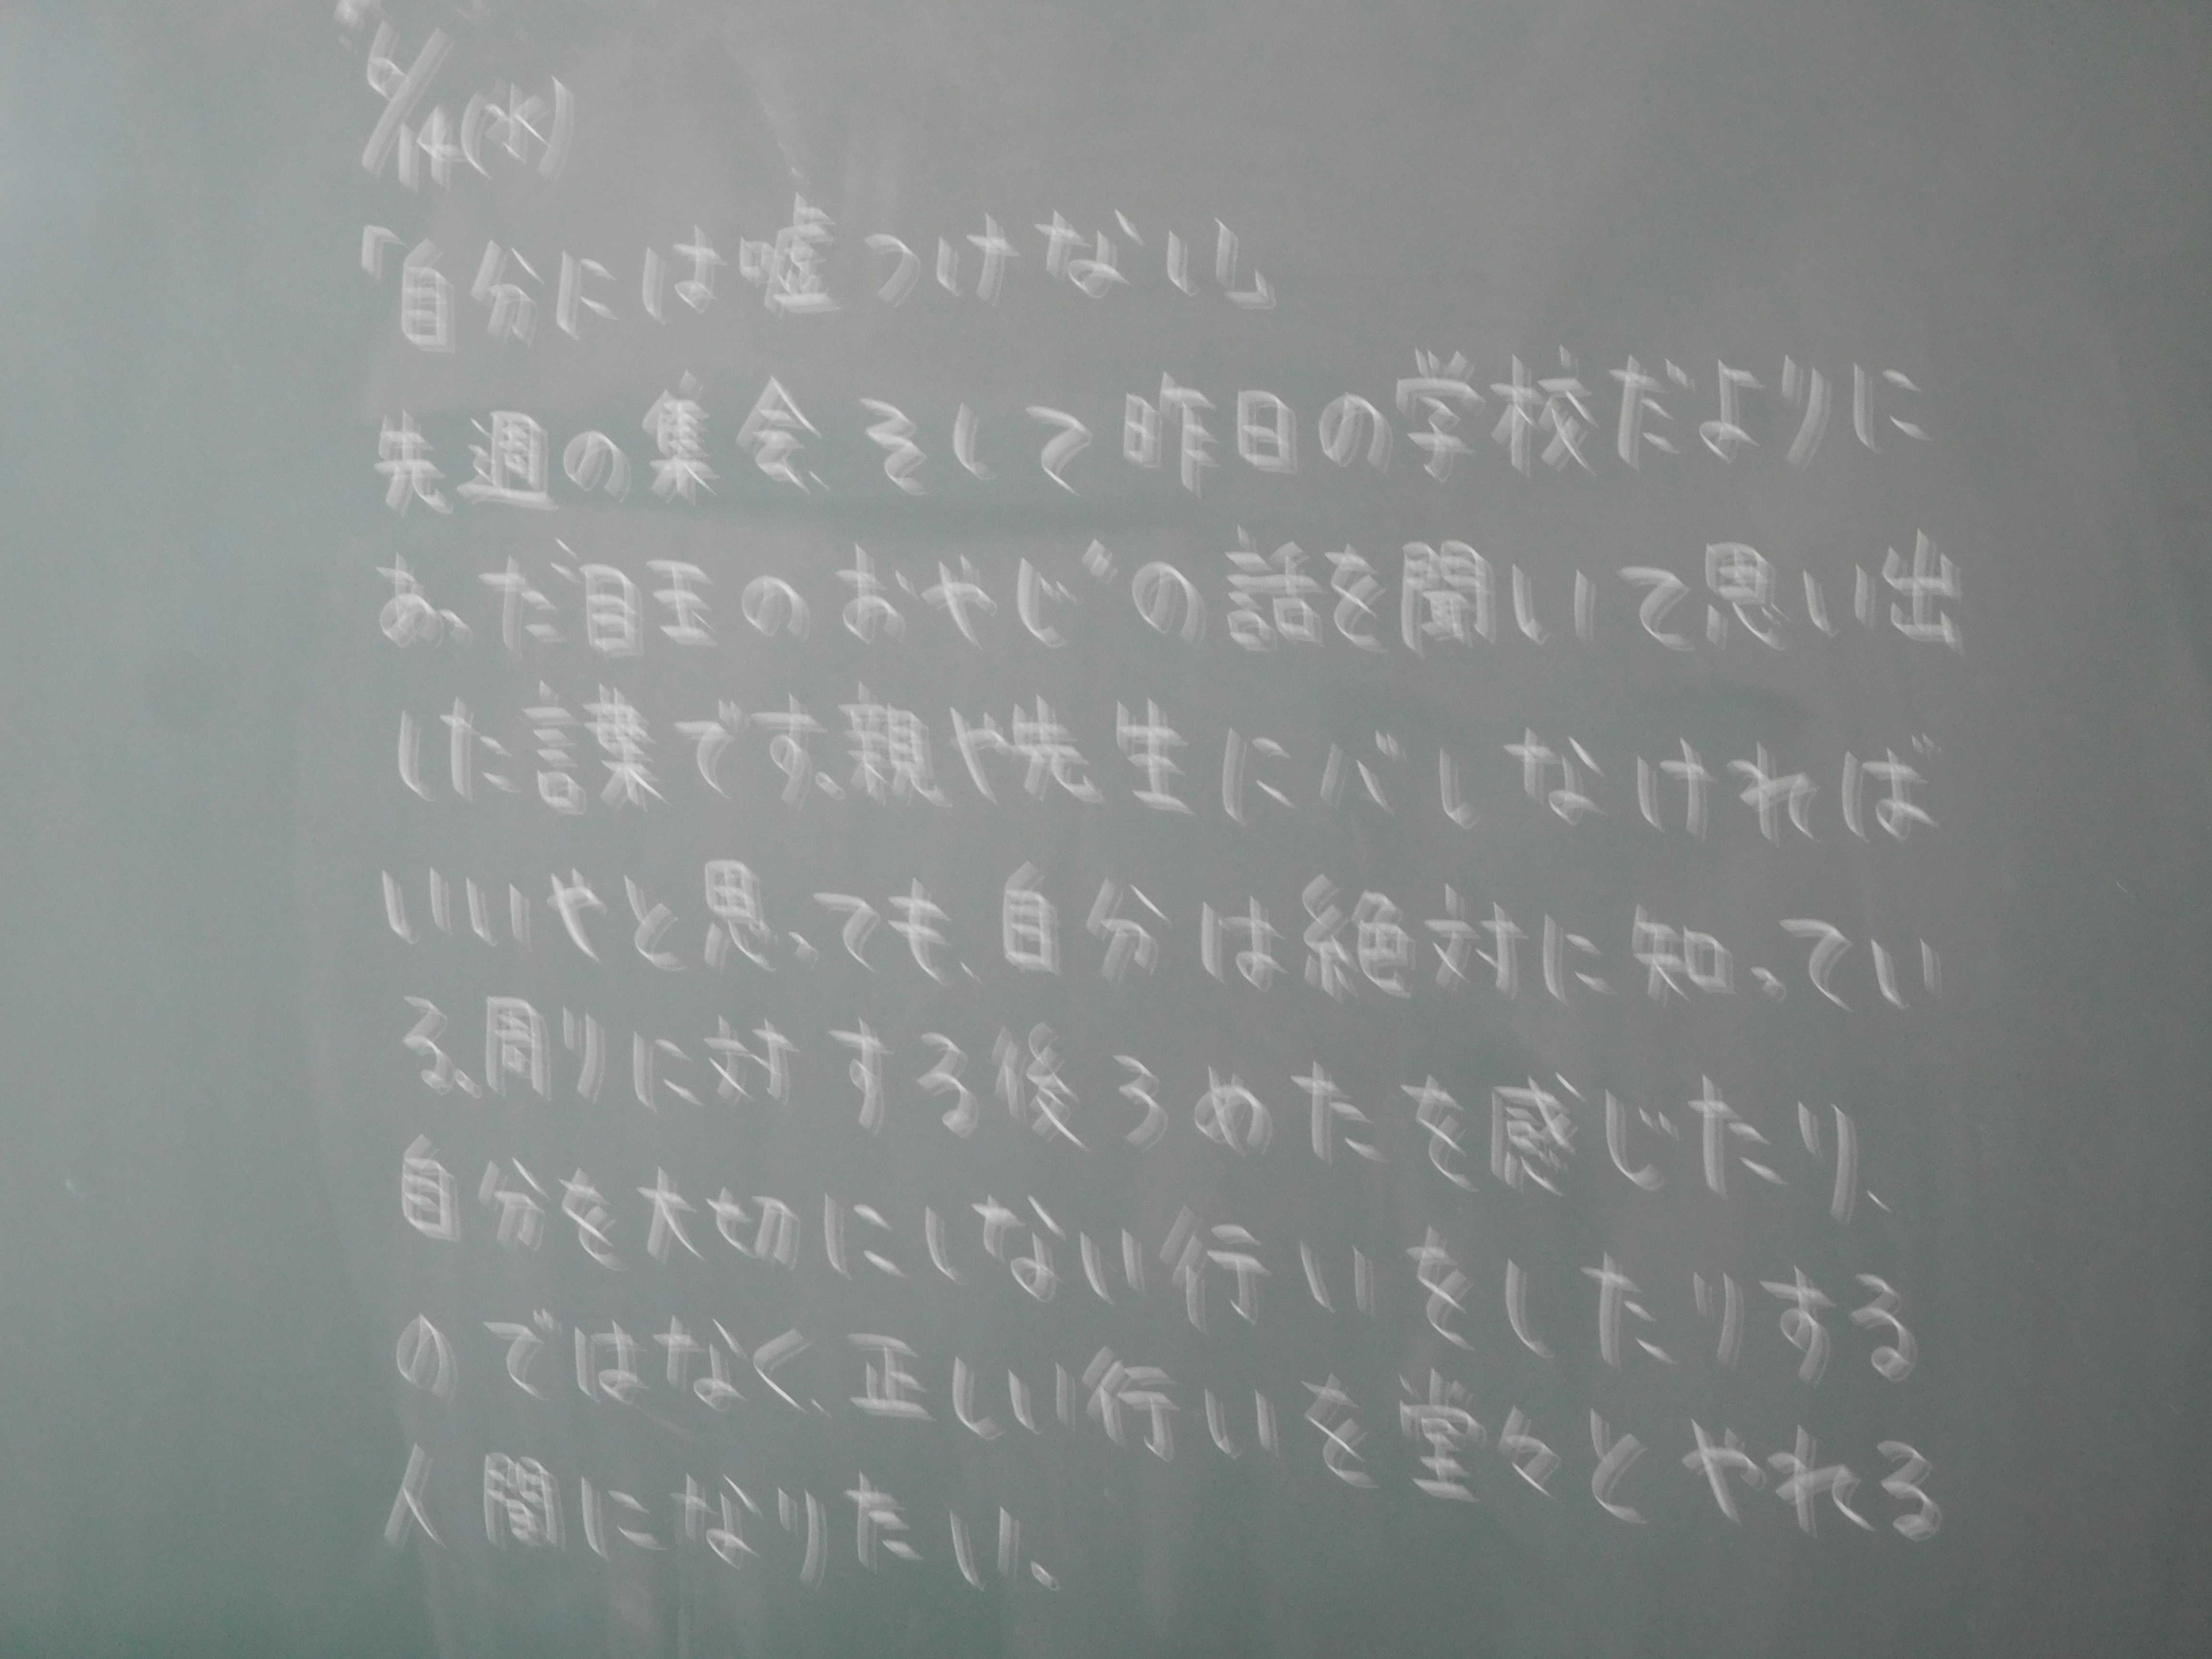 6/14(水)
「自分には嘘つけない」
先週の集会、そして昨日の学校だよりに
あった目玉のおやじの話を聞いて思い出
した言葉です。親や先生にバレなければ
いいやと思っても、自分は絶対に知ってい
る。周りに対する後ろめたを感じたり、
自分を大切にしない行いをしたりする
のではなく、正しい行いを堂々とやれる
人間になりたい。